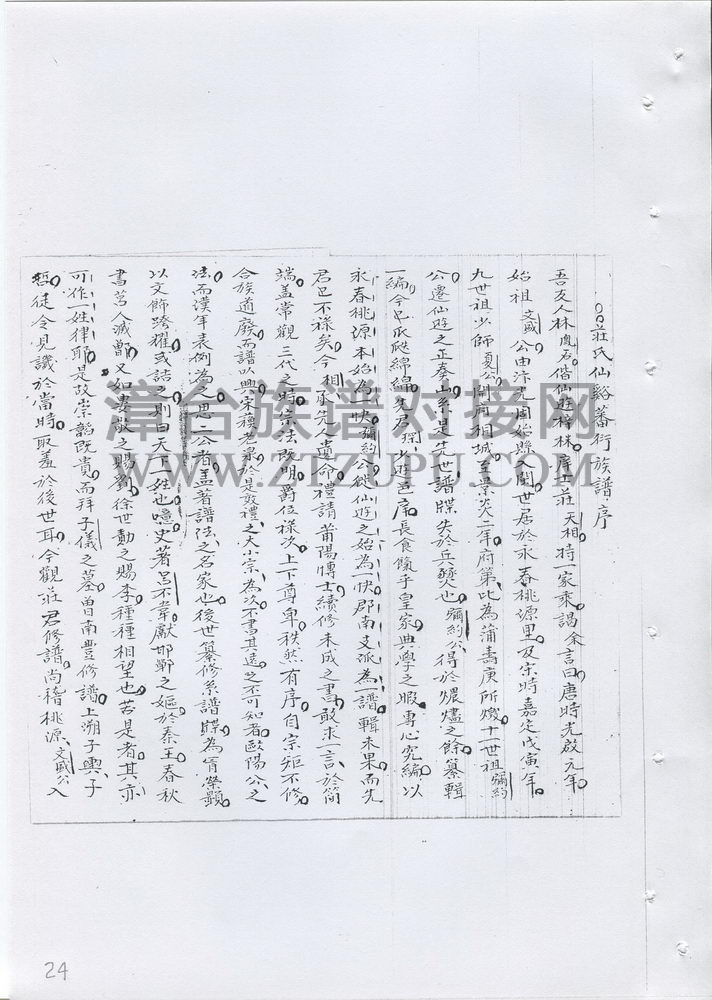 莊氏仙谿蕃衍族譜序
吾友人林鳳石偕仙遊梓林庠士莊天相持一家乘謁余言曰唐時光啟元年
始祖文盛公由汴光固始縣入閩世居於永春桃源里及宋時嘉定戊寅年
九世祖少師夏公開府相城至景炎二年府第此為蒲壽庚所燬十一世祖彌約
公遷仙遊之正奏山系是先世譜牒失於兵燹也彌約公得於燬燼之餘纂輯
一編今已瓜瓞綿綿先君琛少遊邑庠長食餼乎皇家典學之暇專心究編以
永春桃源本始為一快彌約公從仙遊之始為一快郡南支派為一譜輯未果而先
君已不祿矣今相承先人遺命禮請莆陽博士續修未成之書敢求一言於簡
端盖常觀三代之時宗法既明爵位祿次上下尊卑秩然有序自宗矩不修
合族道廢而譜以興宋蘓老泉於是敦禮之大小宗為次不書其遠之不可知者歐陽公之
法而漢年表例為之思二公者盖著譜法之名家也後世纂修系譜牒為首榮顯
以文飾跨耀或詰之則曰天下一姓也噫史著呂不韋獻邯鄲之姬於秦王春秋
書莒人滅鄫又如婁敬之賜劉徐世勣之賜李種種相望也若是者其亦
可作一姓律耶是故崇韜既貴而拜子儀之墓曾南豐修譜上溯子輿子
晳徒令見譏於當時取羞於後世耳今觀莊君修譜尚稽桃源文盛公入
24
漳台族谱对接网
WWW.ZTZUPU.COM